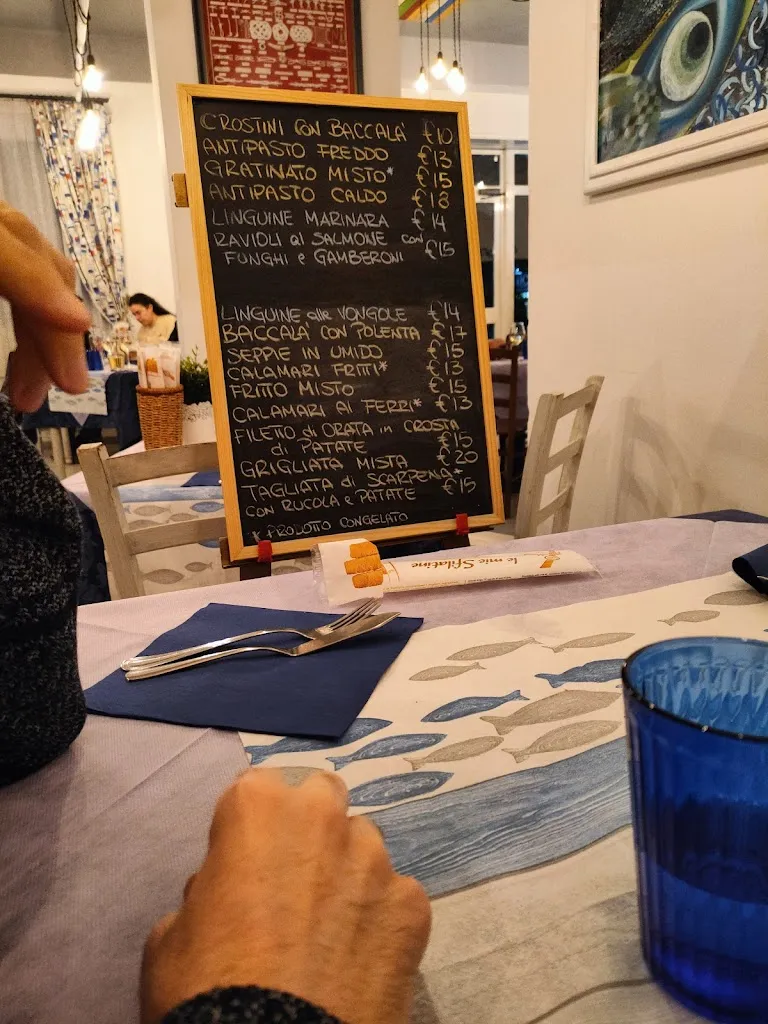 CROSTINI CON BACCALA' €10
ANTIPASTO FREDDO €13
GRATINATO MISTO* €15
ANTIPASTO CALDO €18
LINGUINE MARINARA €14
RAVIOLI al SALMONE con
FUNGHI e GAMBERONI €15
LINGUINE alle VONGOLE €14
BACCALA' CON POLENTA €17
SEPPIE IN UMIDO €15
CALAMARI FRITTI* €13
FRITTO MISTO €15
CALAMARI AI FERRI* €13
FILETTO di ORATA in CROSTA
di PATATE €15
GRIGLIATA MISTA €20
TAGLIATA di SCARPENA*
CON RUCOLA e PATATE €15
* PRODOTTO CONGELATO
le mie Sfilatine